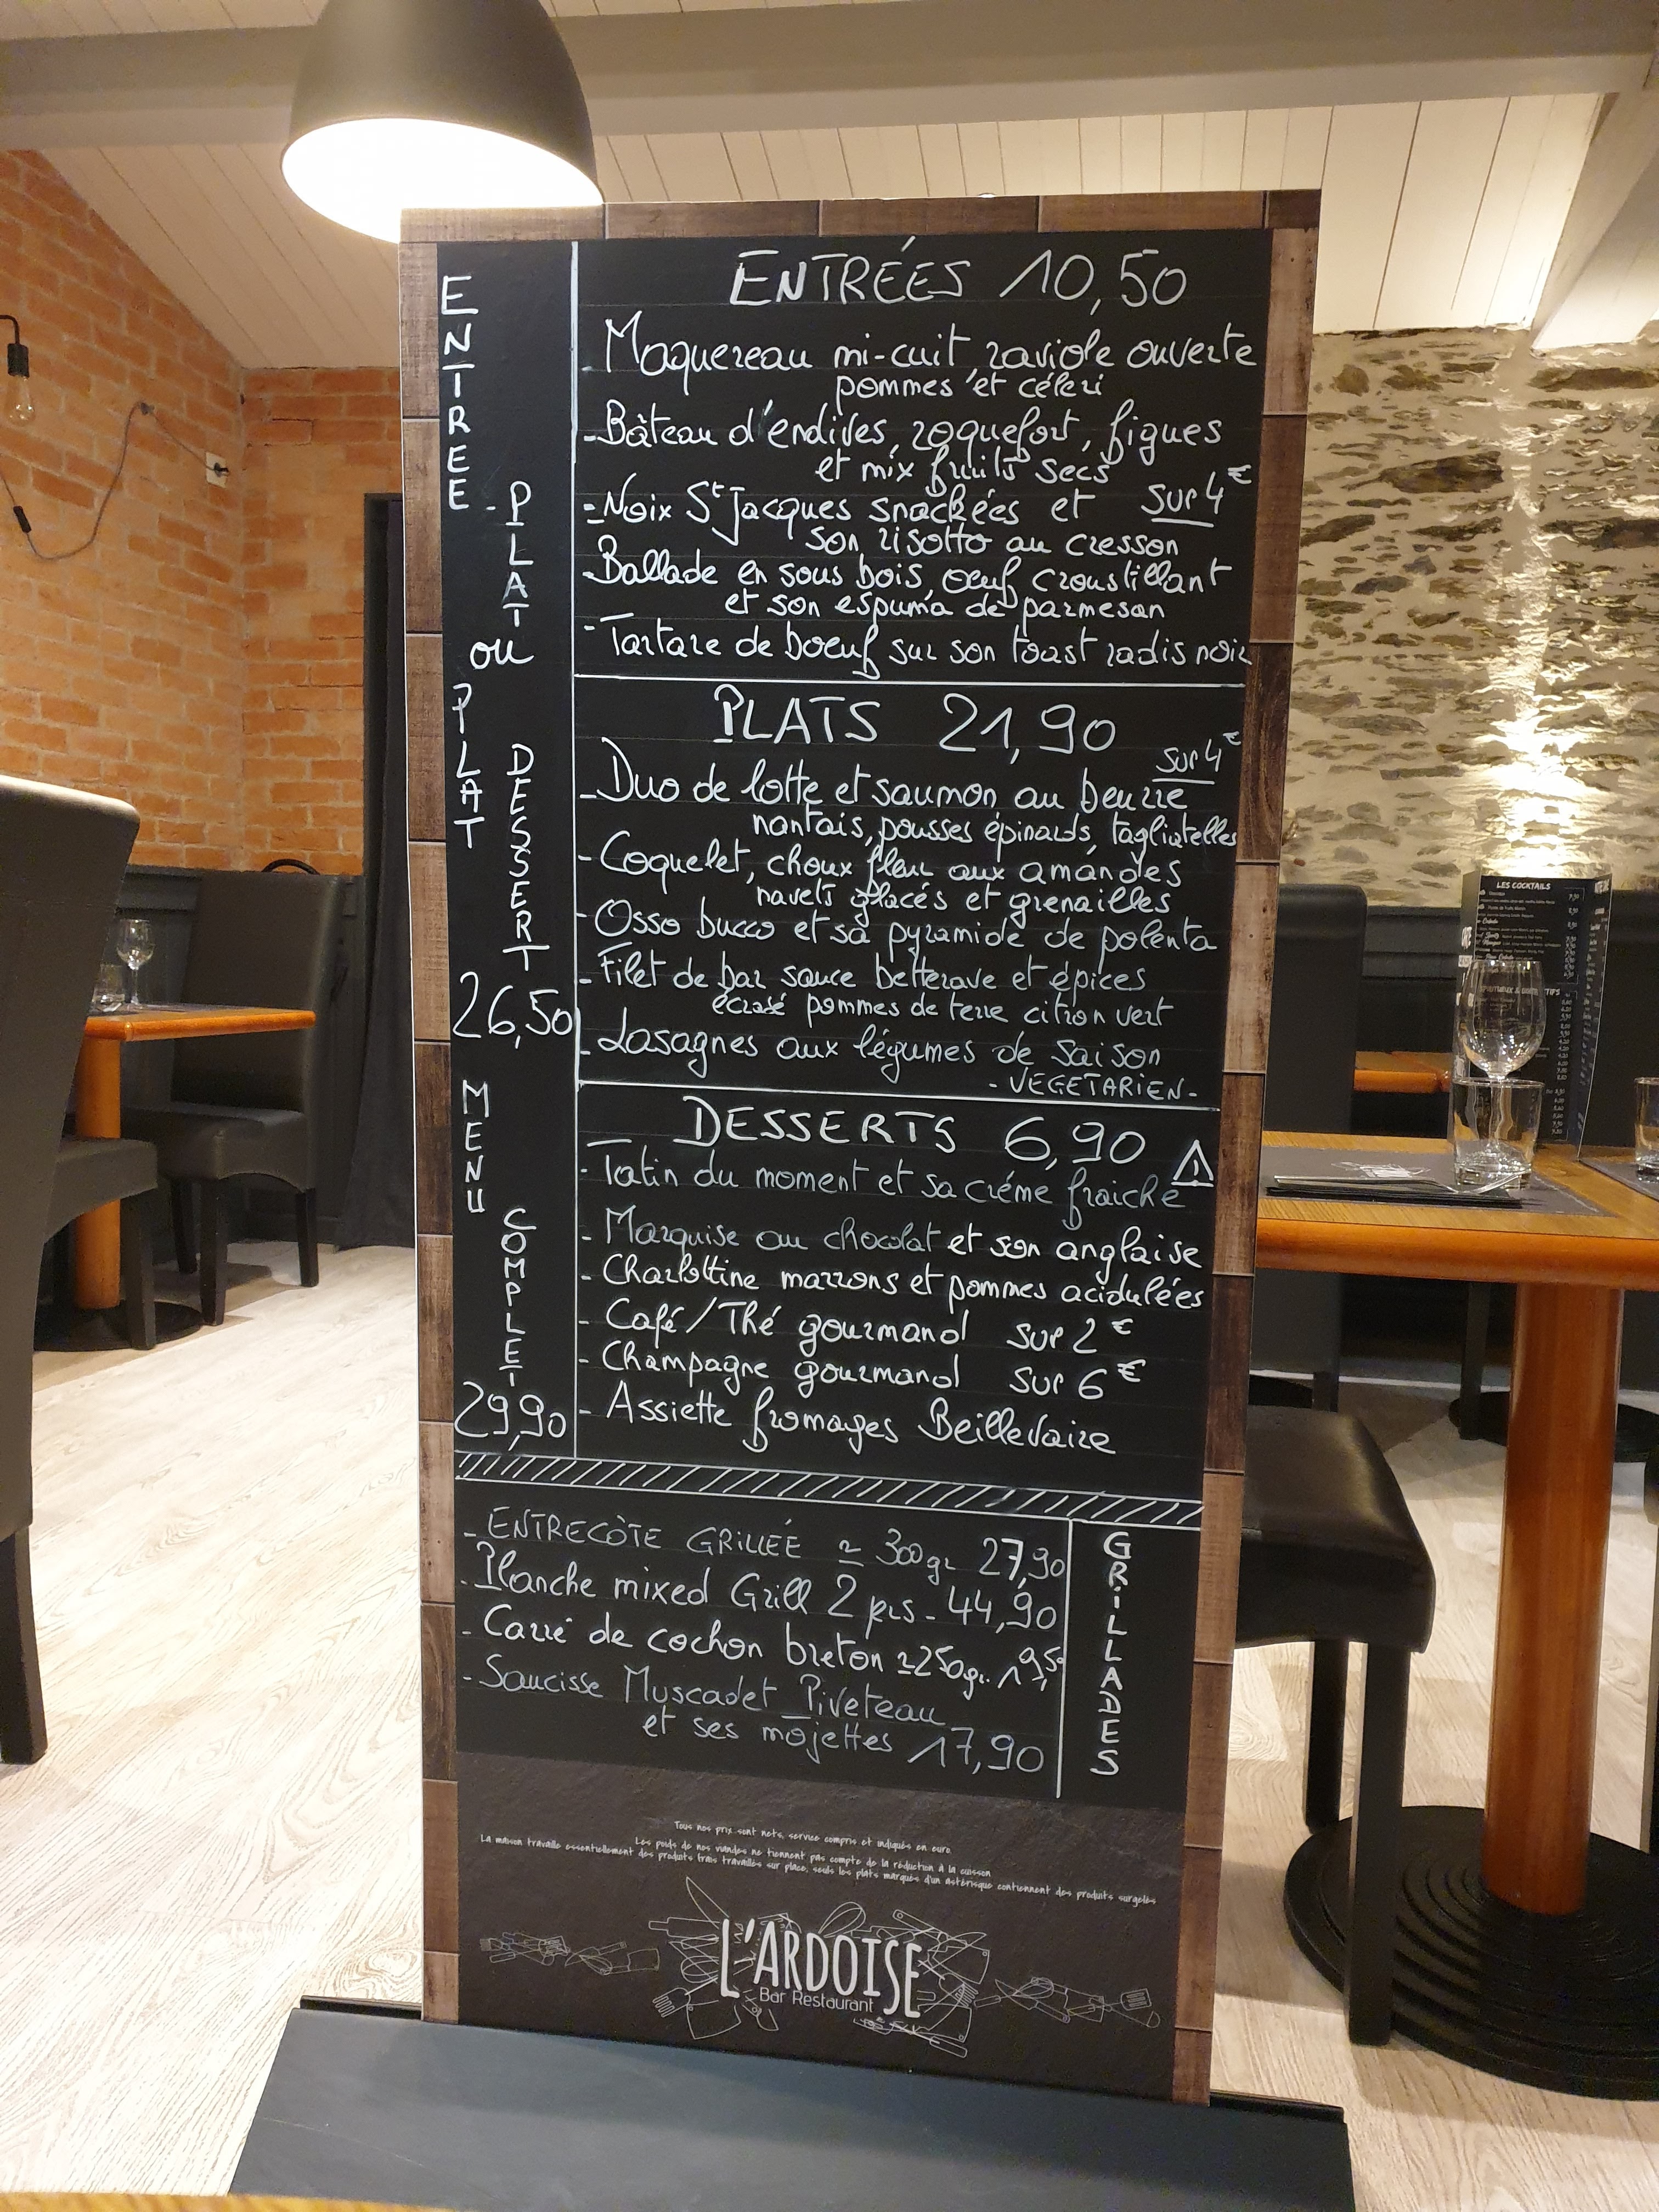 ENTREE - PLAT
ou
PLAT DESSERT
26,50
MENU COMPLET
29,90
ENTRÉES 10,50
- Maquereau mi-cuit, raviole ouverte
pommes et céleri
- Bâteau d'endives, roquefort, figues
et mix fruits secs
- Noix St Jacques snackées et sur 4€
son risotto au cresson
- Ballade en sous bois, oeuf croustillant
et son espuma de parmesan
- Tartare de boeuf sur son toast radis noir
PLATS 21,90
sur 4€
- Duo de lotte et saumon au beurre
nantais, pousses épinards, tagliatelles
- Coquelet, choux fleur aux amandes
navets glacés et grenailles
- Osso bucco et sa pyramide de polenta
- Filet de bar sauce betterave et épices
écrasé pommes de terre citron vert
- Lasagnes aux légumes de saison
- VEGETARIEN -
DESSERTS 6,90
- Tatin du moment et sa créme fraiche
- Marquise au chocolat et son anglaise
- Charlottine marrons et pommes acidulées
- Café/Thé gourmand sur 2€
- Champagne gourmand sur 6€
- Assiette fromages Beillevaire
- ENTRECÔTE GRILLÉE ≃ 300gr 27,90
- Planche mixed Grill 2 prs - 44,90
- Carré de cochon breton ≃250gr. 19,50
- Saucisse Muscadet Piveteau
et ses mojettes 17,90
GRILLADES
Tous nos prix sont nets, service compris et indiqués en euro.
Les poids de nos viandes ne tiennent pas compte de la réduction à la cuisson
La maison travaille essentiellement des produits frais travaillés sur place, seuls les plats marqués d'un astérisque contiennent des produits surgelés
L'ARDOISE
Bar Restaurant
LES COCKTAILS